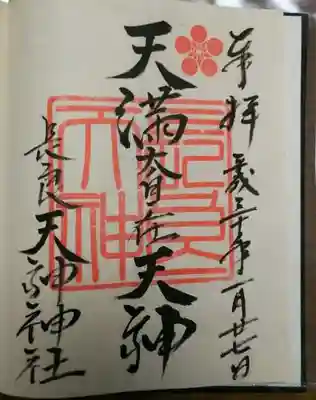 奉拝 平成三十年一月廿七日
天満大自在天神
長良天神神社
長良天神